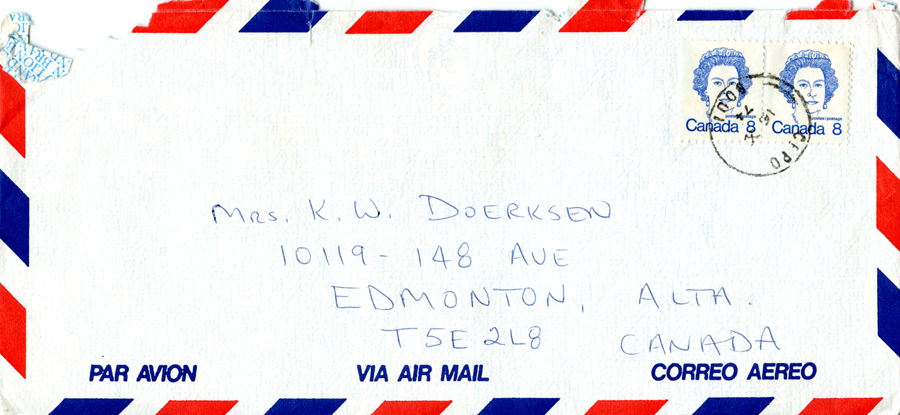 Canada 8
postes/postage
Canada 8
CFPO 5001
Mrs. K. W. DOERKSEN
10119 - 148 AVE
EDMONTON, ALTA.
T5E 2L8 CANADA
PAR AVION VIA AIR MAIL CORREO AEREO